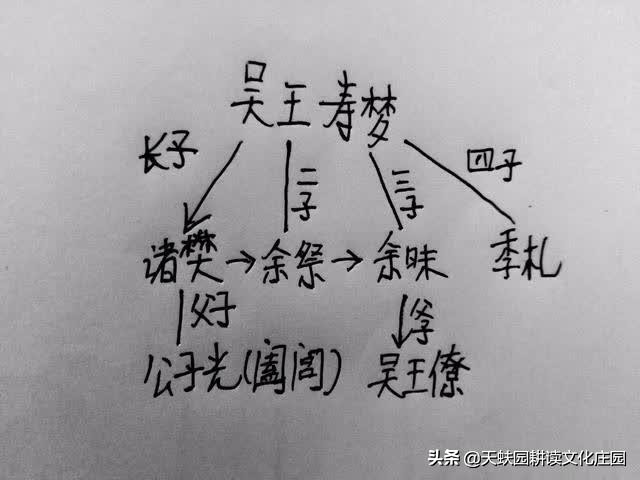 吴王寿梦
长子 二子 三子 四子
诸樊→余祭→余昧 季札
父子 父子
公子光(阖闾) 吴王僚
头条 @天蚨园耕读文化庄园